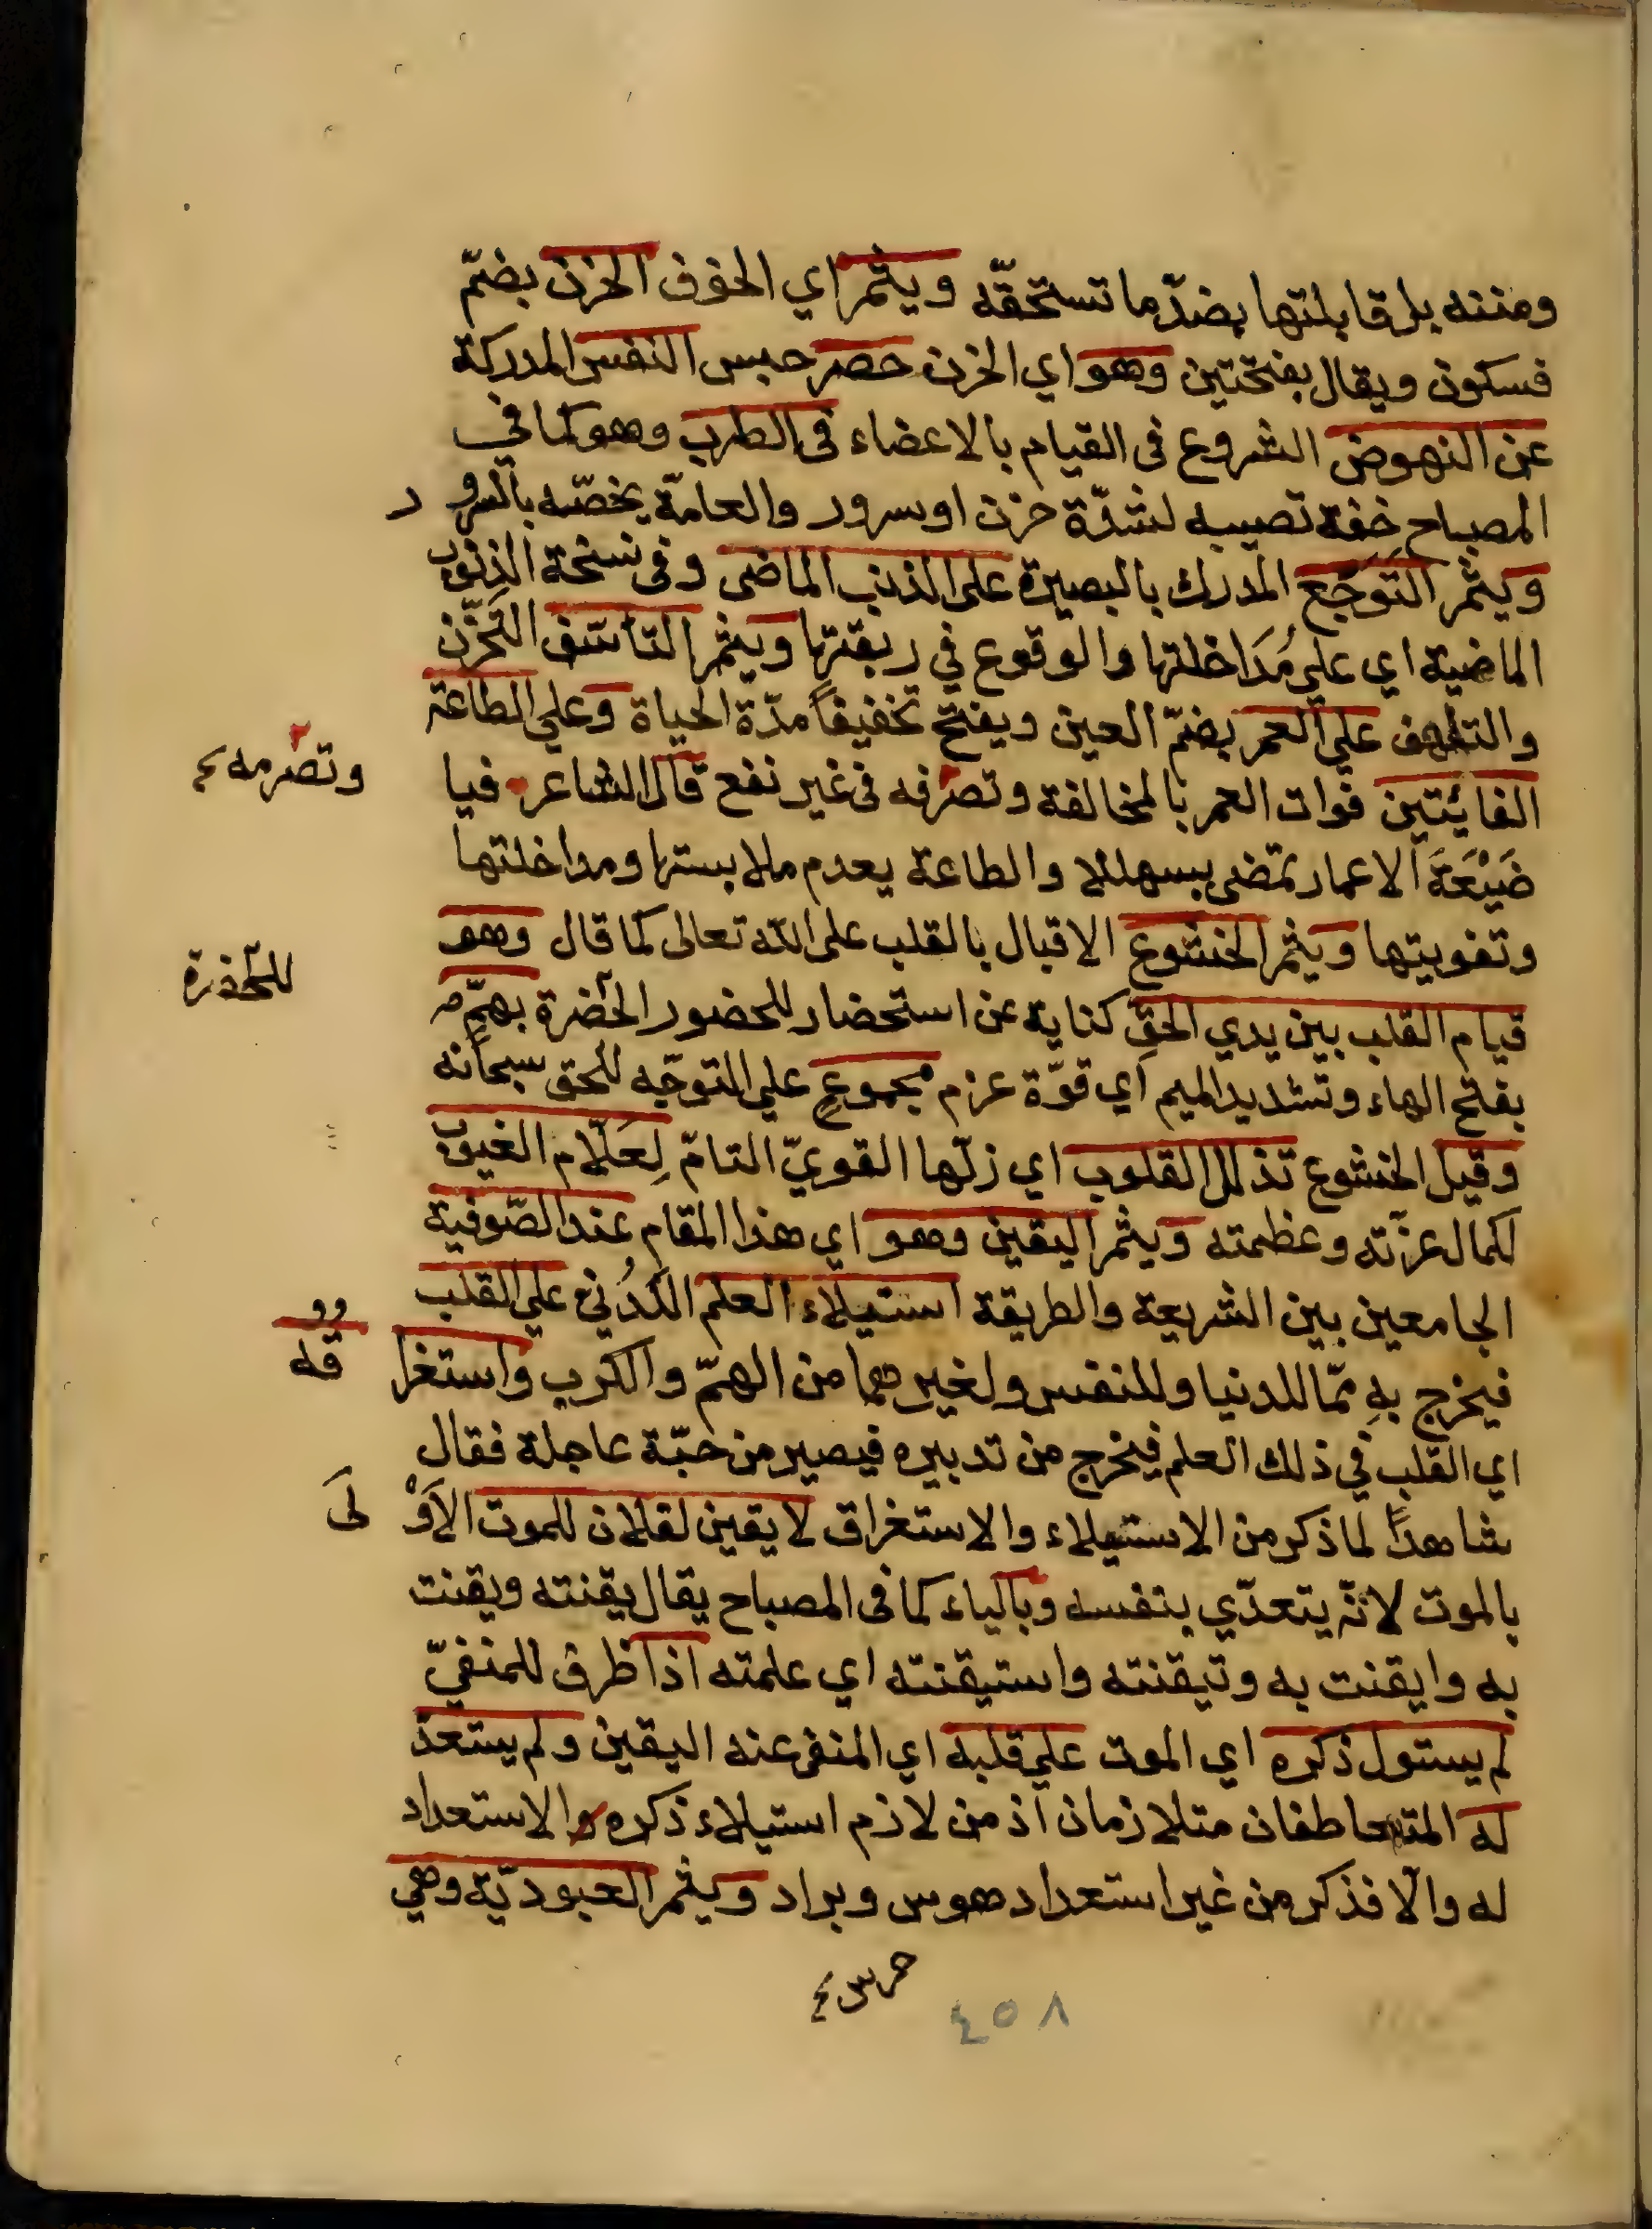 ومننه بل قابلتها بضدّ ما تستحقّه ويثمر اي الخوف الحزن بضمّ
فسكون ويقال بفتحتين وهو اي الحزن حصر حبس النفس المدركة
عن النهوض الشروع في القيام بالاعضاء في الطرب وهو كما في
المصباح خفة تصيبه لشدّة حزن او سرور والعامّة يخصّه بالسرور
ويثمر التوجّع المدرك بالبصيرة على الذنب الماضى وفى نسخة الذنوب
الماضية اي علي مُدَاخلتها والوقوع في ربقتها ويثمر التأسّف التحزّن
والتلهف على العمر بضمّ العين ويفتح تخفيفاً مدّة الحياة وعلي الطاعة
الفائتين فوات العمر بالمخالفة وتصرفه فى غير نفع قال الشاعر فيا
وتصرمه
ضَيْعَةَ الاعمار تمضى سبهللا والطاعة بعدم ملابستها ومداخلتها
وتفويتها ويثمر الخشوع الاقبال بالقلب على الله تعالى كما قال وهو
قيام القلب بين يدي الحقّ كناية عن استحضار للحضور الحضرة بهمٍّ
للحضرة
بفتح الهاء وتشديد الميم اي قوّة عزم مجموعٍ علي التوجّه للحق سبحانه
وقيل الخشوع تذلل القلوب اي زلّها القويّ التامّ لِعَلّام الغيوب
لكمال عزّته وعظمته ويثمر اليقين وهو اي هذا المقام عند الصّوفية
الجامعين بين الشريعة والطريقة استيلاء العلم اللّدُني علي القلب
فيخرج بهِ ممّا للدنيا وللنفس ولغيرهما من الهمّ والكرب واستغرا
قه
اي القلب في ذلك العلم فيخرج من تدبيره فيصير من حبّة عاجلة فقال
شاهداً لما ذكر من الاستيلاء والاستغراق لا يقين لفلان للموت الاَوْلَى
بالموت لانّه يتعدّي بنفسه وبالباء كما فى المصباح يقال يقنته ويقنت
به وايقنت به وتيقنته واستيقنته اي علمته اذا ظرف للمنفيّ
لم يستول ذكره اي الموت علي قلبه اي المنفى عنه اليقين ولم يستعدّ
له المتعاطفان متلازمان اذ من لازم استيلاء ذكره والاستعداد
له والّا فذكر من غير استعداد هوس وبراد ويثمر العبوديّة وهي
٤٥٨